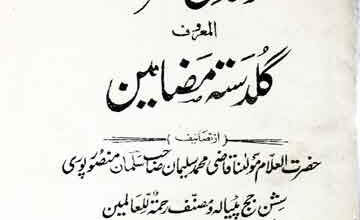 المعروف
گلدستہ مضامین
از تصانیف
حضرت العلام مولٰنا قاضی محمد سلیمان صاحب سلمان منصورپوری
سشن جج پٹیالہ و مصنف رحمۃ للعالمین